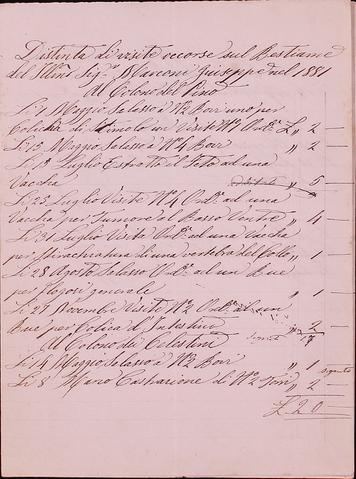 Distinta di visite occorse sul Bestiame
del Ill.mo Sig.r Marconi Giuseppe nel 1881
Al Colono del Pino
Li Maggio Salasso a N.2 Bovi uno per
Colica di Visite N.1 Ord.e £ 2 —
Li 15 Maggio Salasso a N.4 Bovi " 2 —
Li 19 Luglio Estratto il Feto ad una
Vaccha " 5 —
Li 23 Luglio Visite N.4 Ord.e ad una
Vaccha per Tumore al Basso Ventre " 4 —
Li 31 Luglio Visita Ord.e ad una Vaccha
per Stirachiatura di una vertebra del Collo " 1 —
Li 28 Agosto Salasso Ord.e ad un Bue
per Flogosi generale " 1 —
Li 27 Novembre Visite N.2 Ord.e ad un
Bue per Colica d'Intestini " 2 —
17
Al Colono dei Celestini
Li 14 Maggio Salasso a N.2 Bovi " 1
Li 8 Marzo Castrazione di N.2 Tori " 2 —
£ 20 —